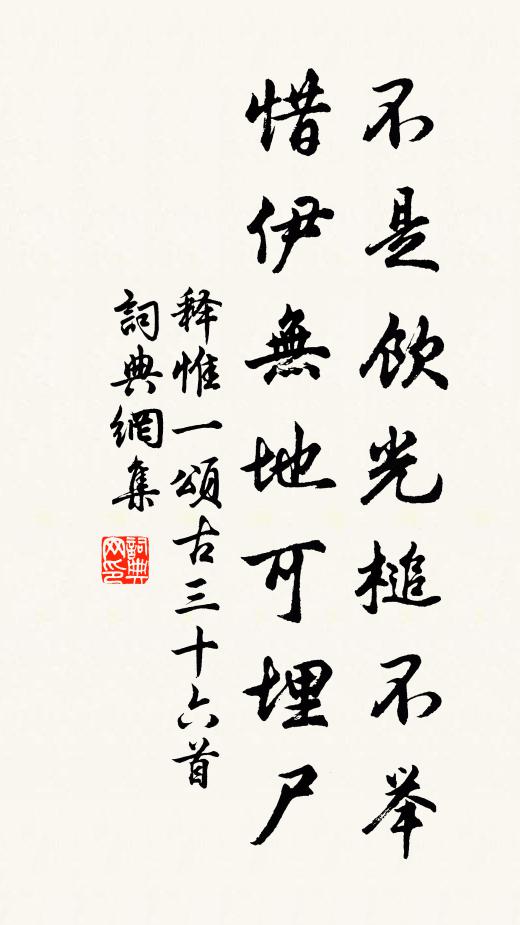 不是飲光槌不举
惜伊無地可埋尸
释惟一頌古三十六首
詞典網集
詞典网印